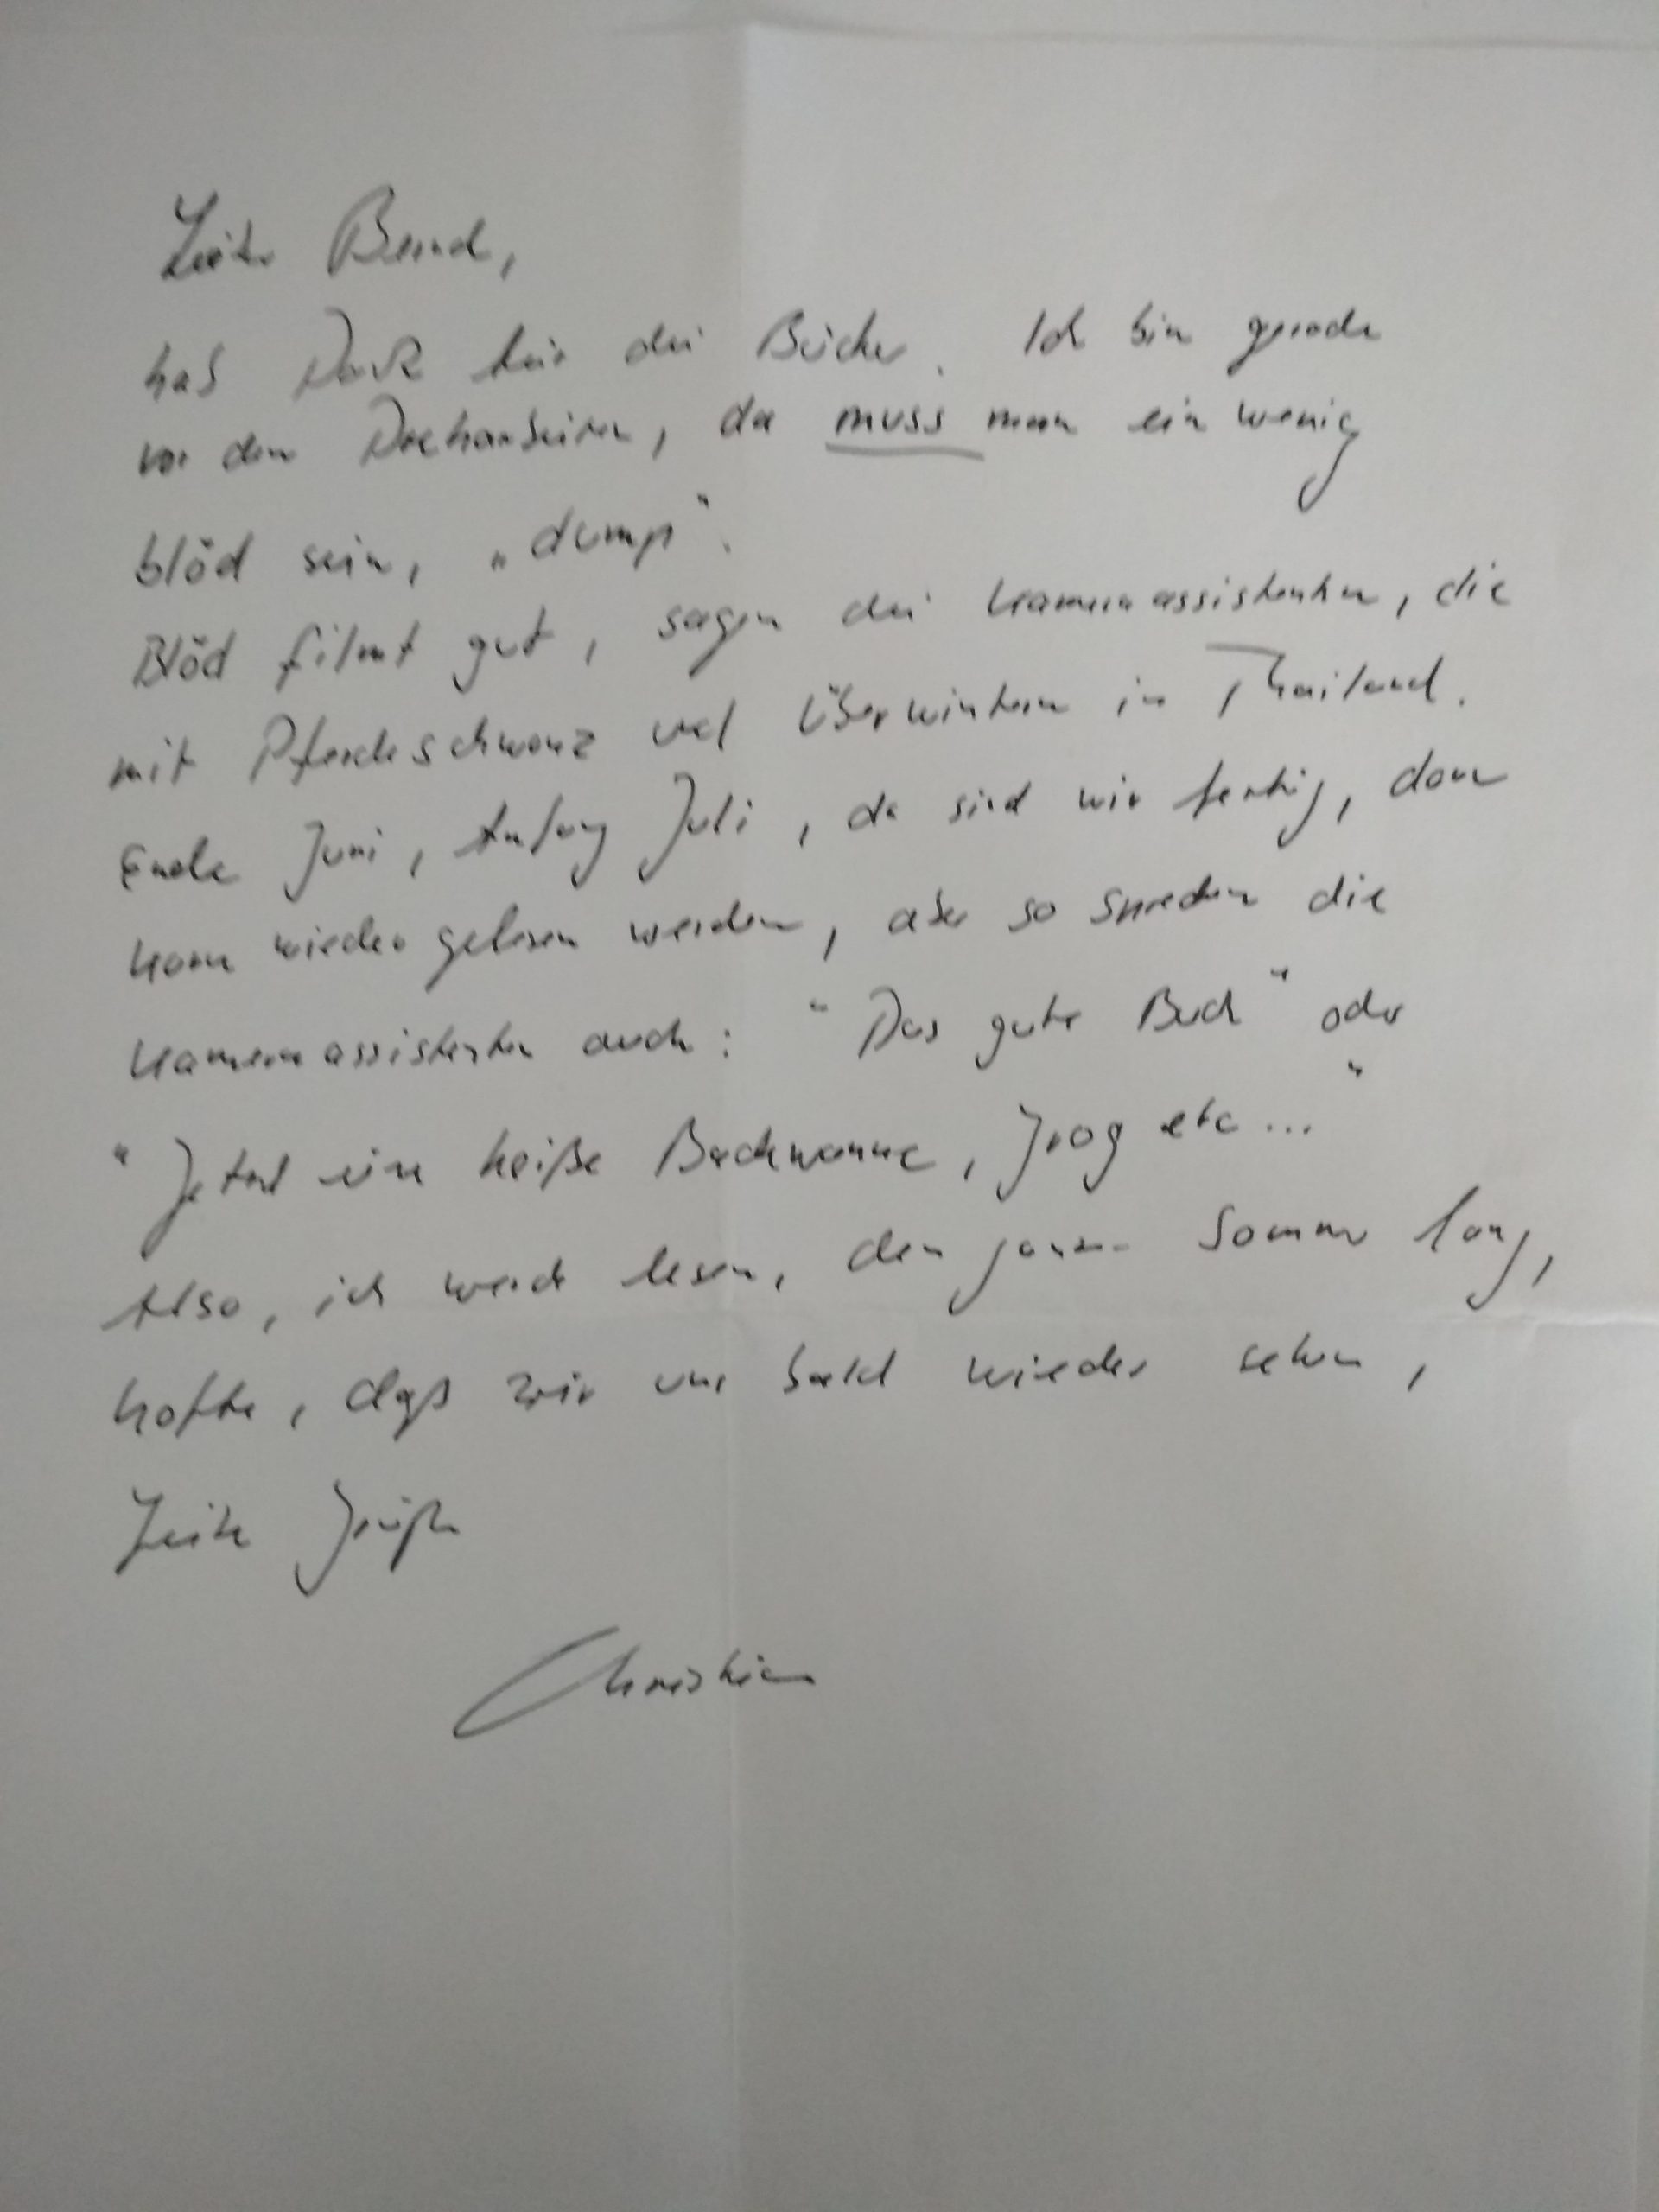 Lieber Bernd,
hab Dank für die Bücher. Ich bin gerade
vor den Dreharbeiten, da muss man ein wenig
blöd sein, „dump“.
Blöd filmt gut, sagen die Kameraassistenten, die
mit Pferdeschwanz und Überwintern in Thailand.
Ende Juni, Anfang Juli, da sind wir fertig, dann
kann wieder gelesen werden, aber so sprechen die
Kameraassistenten auch: "Das gute Buch" oder
"Jetzt eine heiße Badewanne, Grog etc..."
Also, ich werde lesen, den ganzen Sommer lang,
hoffe, daß wir uns bald wieder sehen,
Liebe Grüße
Christian